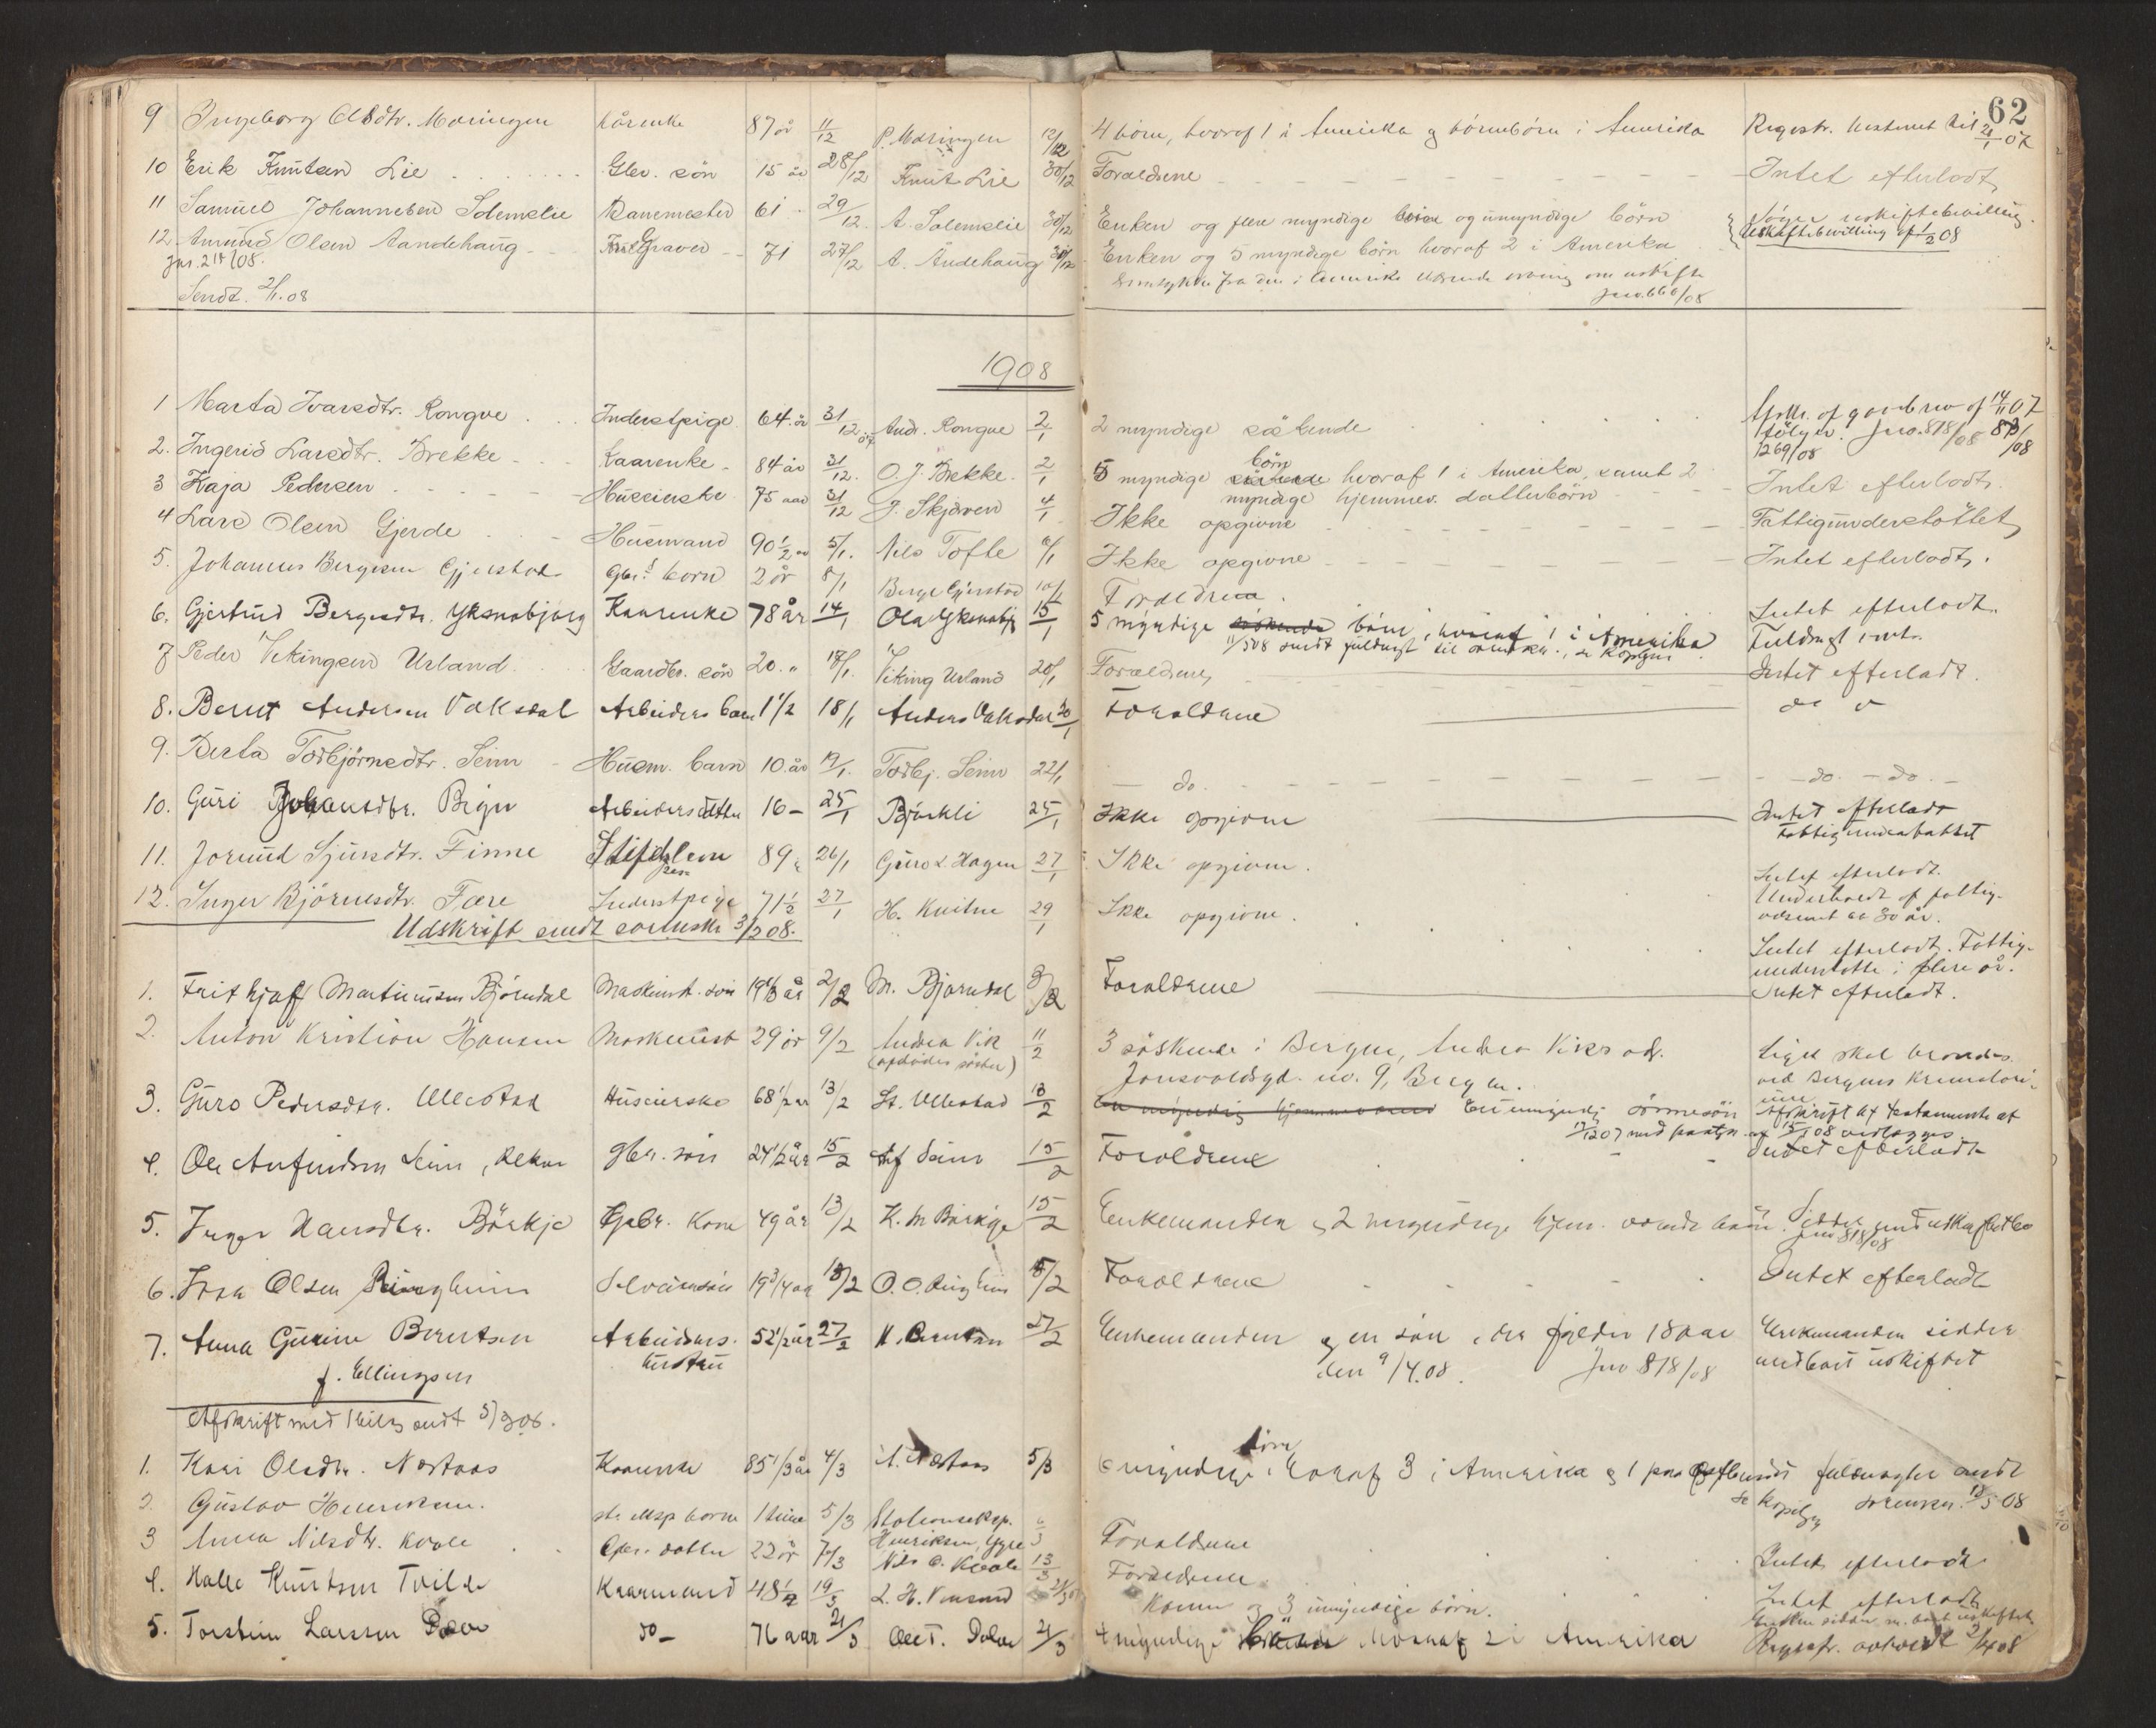 62
9 Ingeborg Olsdtr. Mæringen kårenke 87 år 11/12 P. Mæringen 12/12 4 börn, hvoraf 1 i Amerika og börnebörn i Amerika Registr.
10 Erik Knutsen Lie Gbr. sön 15 år 28/12 Knut Lie 30/12 Forældrene Intet efterladt
11 Samuel Johannesen Solemslie Banemester 61 29/12 A. Solemslie 30/12 Enken og flere myndige og umyndige börn Söger uskiftebevilling
12 Amund Olsen Aandehaug Graver 71 27/12 A. Andehaug 30/12 Enken og 5 myndige börn hvoraf 2 i Amerika Uskiftebevilling af 1/2 08
Jnr. 214/08.
Samtykke fra den i Amerika værende arving om uskifte
Sendt 2/1.08
Jno. 666/08
1908
1 Marta Ivarsdtr. Rongve Inderstpige 64 år 31/12 07 And. Rongve 2/1 2 myndige söskende af 14/11 07
fölger. Jno. 818/08
1269/08
2. Ingerid Larsdtr. Brekke Kaarenke 84 år 31/12. O. J. Brekke. 2/1 5 myndige söskende börn hvoraf 1 i Amerika, samt 2
myndige hjemmev. datterbörn Intet efterladt
3 Kaja Pedersen Huseierske 75 aar 31/12 J. Skjerven 4/1 Ikke opgivne Fattigunderstöttet
4 Lars Olsen Gjerde Husmand 90 1/2 5/1. Nils Tofte 6/1 Ikke opgivne Intet efterladt.
5. Johannes Bergesen Gjerstad Gbr.s barn 2 år 8/1 Berge Gjerstad 10/1 Forældrene Intet efterladt.
6. Gjertrud Bergesdtr. Yksnabjørg Kaarenke 78 år 14/1 Ola Yksnabjg 15/1 5 myndige söskende börn, hvoraf 1 i Amerika Fuldmagt
11/5 08 sendt fuldmagt til
7 Peder Vikingsen Urland Gaardbr. sön 20. " 18/1. Viking Urland 20/1 Forældrene Intet efterladt.
8. Bernt Andersen Vaksdal Arbeiders barn 1 1/2 18/1 Anders Vaksdal 20/1 Forældrene do do
9. Berta Torbjörnsdtr. Seim Husm. barn 10. år 19/1. Torbj. Seim 22/1 do. do. do.
10. Guri Johansdtr. Bign Arbeidersdatter 16 - 25/1 Björkli 25/1 Ikke opgivne Intet efterladt
Fattigunderstöttet
11. Jorund Sjursdtr. Finne 89 26/1 Guro L. Hagen 27/1 Ikke opgivne. Intet efterladt.
Underholdt af fattig-
væsenet ca 30 år.
12. Inger Björnsdtr. Fære Inderstpige 71 1/2 27/1 H. Kvitne 29/1 Ikke opgivne. Intet efterladt. Fattig-
understötte i flere år.
Udskrift sendt sorenskr 3/2 08.
1. Frithjoff Martinusen Björndal Maskinist. sön 2/2 M. Björndal 3/2 Forældrene Intet efterladt.
2. Anton Kristian Hansen Maskinist 29 år 9/2 Andrea Vik 11/2 3 söskende i Bergen, Andrea Viks adr. Liget skal brændes
(afdödes söster) Jonsvoldsgd. no. 9, Bergen. ved Bergens Krematori-
3. Guro Pedersdtr. Ullestad Huseierske 68 1/2 år 13/2 St. Ullestad 13/2 En myndig Afskrift af testamente af
4. Ole Anfindsen Seim, gbr. sön 24 1/2 år 15/2 Anf Seim 15/2 Forældrene Intet efterladt
5. Inger Hansdtr. Börkje Gbr. Kone 49 år 13/2 K. M Börkje 15/2 Enkemanden og 2 hjem. værende börn. Sidder med uskiftet bo
Jno 818/08
6. Olsen Ringheim 19 3/4 aar 13/2 O. O. Ringheim 15/2 Forældrene Intet efterladt
7. Anna Gurine Berntsen Arbeiders. 52 1/2 år 27/2 Berntsen 27/2 Enkemanden og en sön, der fylder 18 aar Enkemanden sidder
f. Ellingsen hustru den 9/4.08. Jno 818/08 med boet uskiftet
Afskrift med sendt 5/3 08.
1. Kari Olsdtr. Næstaas Kaarenke 85 1/3 år 4/3 A. Næstaas 5/3 6 myndige börn, hvoraf 3 i Amerika og 1 paa Östlandet fuldmagter sendt
sorenskr. 18/5 08
2. Gustav Henriksen. st. eksp barn 1 time 5/3 Stationseksp.
Henriksen, Ygre Forældrene
3 Anna Nilsdtr. Kvale Gbr. datter 22 år 7/3 Nils O. Kvale 13/3 Forældrene Intet efterladt
4. Halle Knutsen Tvilde Kaarmand 48 1/2 19/3 L. H. 21/3 Konen og 3 umyndige börn. Intet efterladt
Enken sidder m. boet uskiftet
5. Torstein Larssen Dolve do- 76 aar 21/3 Ole T. Dolve 21/3 4 myndige hvoraf 2 i Amerika Registr. 2/4 08